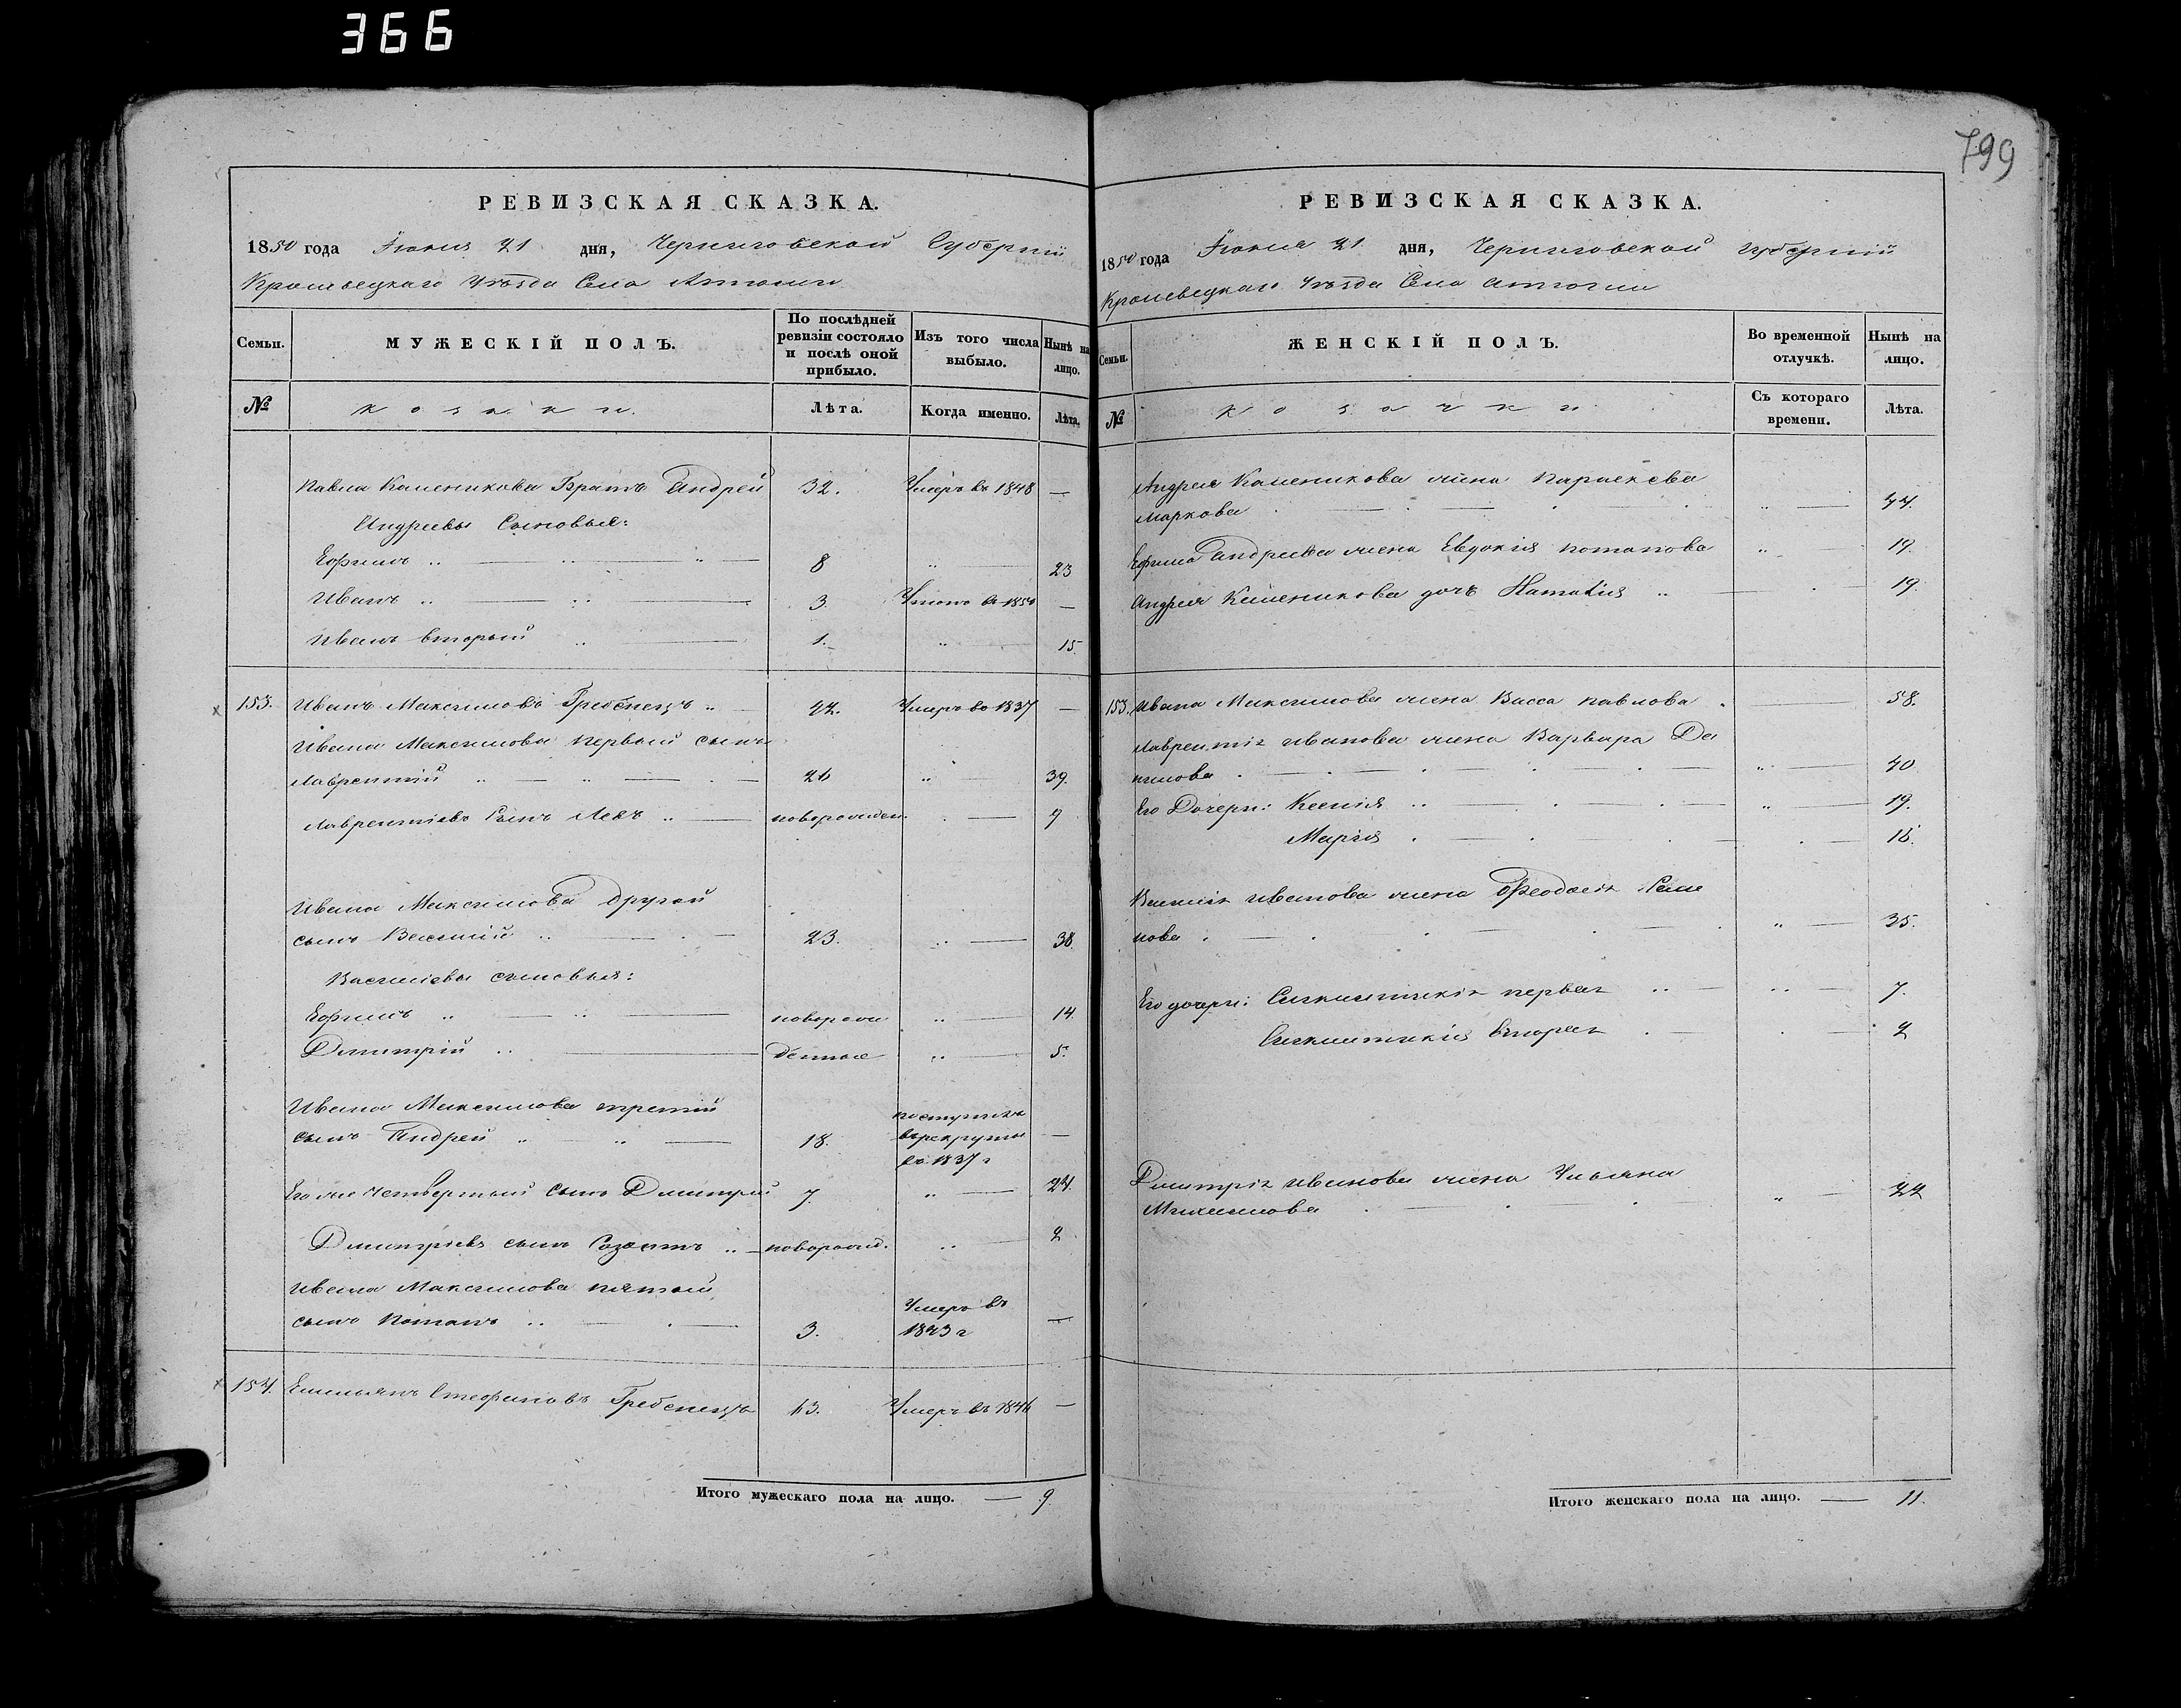 366
799
РЕВИЗСКАЯ СКАЗКА.
1850 года Іюня 21 дня, Черниговской Губерніи
Кролевецкаго Уѣзда Села
Семьи.
МУЖЕСКІЙ ПОЛЪ.
По послѣдней ревизіи состояло и послѣ оной прибыло.
Изъ того числа выбыло.
Нынѣ на лицо.
№
козаки.
Лѣта.
Когда именно.
Лѣта.
Павла Каленикова Братъ Андрей 32. Умеръ въ 1848 —
Андреевы Сыновья:
Ефимъ 8 23
Иванъ 3. въ 1850 —
Иванъ вторый 1. 15.
153. Иванъ Максимовъ Гребенецъ Умеръ въ 1837 —
Ивана Максимова первый сынъ
Лаврентій 39.
Лаврентіевъ Сынъ Левъ новорожден. 9
Ивана Максимова другой
сынъ Василій 23. 38.
Василіевы сыновья:
Ефимъ новорож 14.
Димитрій денные 5.
Ивана Максимова третій
сынъ Андрей 18. поступилъ в рекруты въ 1837 г —
Его же четвертый сынъ Дмитрій 7. 24.
Дмитріевъ сынъ Созонтъ новорожд. 2
Ивана Максимова пятый
сынъ Потапъ 3. Умеръ въ 1843 г —
154. Емельянъ Стефановъ Гребенецъ 63. Умеръ въ 1846 —
Итого мужескаго пола на лицо. — 9.
РЕВИЗСКАЯ СКАЗКА.
1850 года Іюня 21 дня, Черниговской губерніи
Кролевецкаго Уѣзда Села
Семьи.
ЖЕНСКІЙ ПОЛЪ.
Во временной отлучкѣ.
Нынѣ на лицо.
№
козачки
Съ котораго времени.
Лѣта.
Андрея Каленикова жена
Маркова 44.
Ефима Андреева жена Евдокія Потапова 19.
Андрея Каленикова дочь Наталія 19.
153. Ивана Максимова жена Васса Павлова 58.
Лаврентія Иванова жена Варвара Да
нилова 40
Его Дочери: Ксенія 19.
Марія
Василія Иванова жена Феодосія Семе
нова 35.
Его дочери: первая 7.
вторая 2
Дмитрія Иванова жена Ульяна
22
Итого женскаго пола на лицо. — 11.